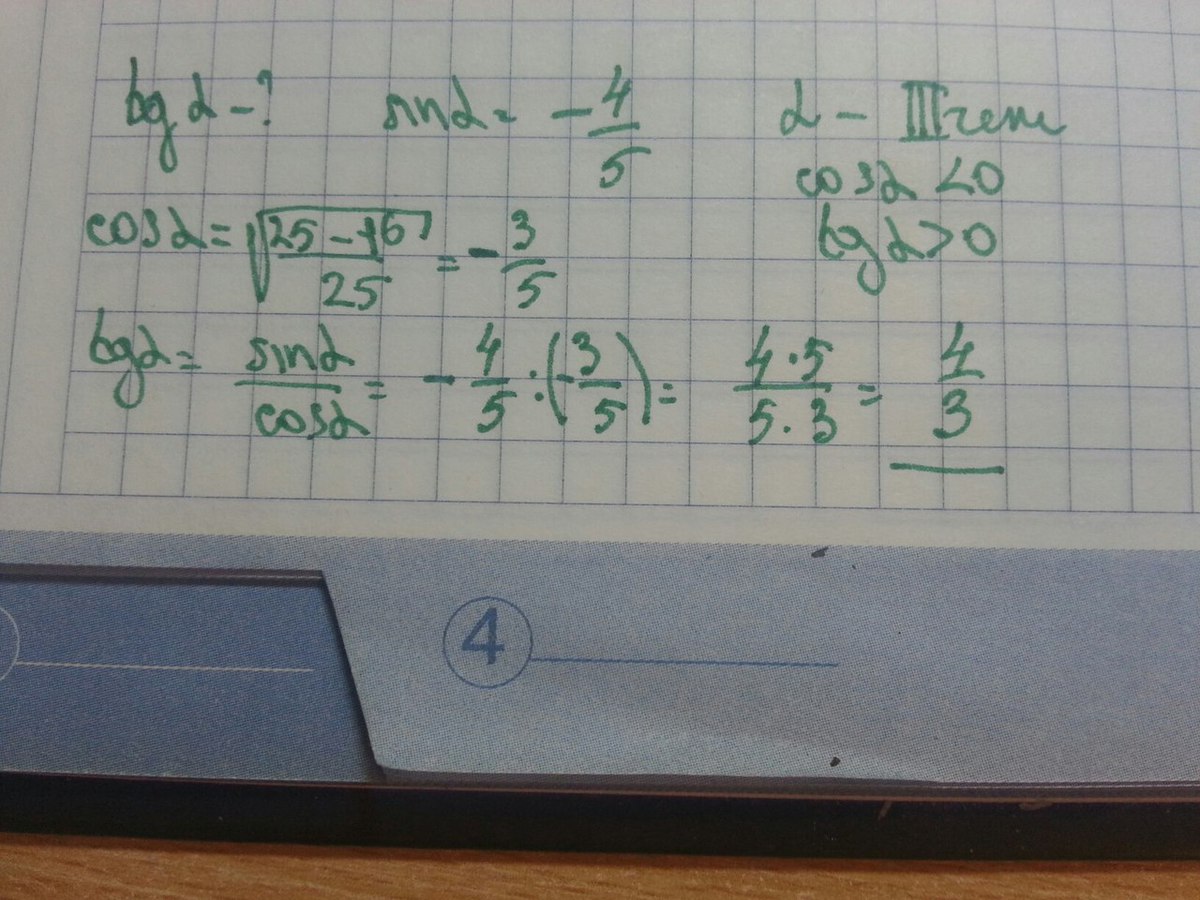 tg α - ? sin α = - 4/5 α - III чет
cos α < 0
cos α = √((25 - 16)/25) = - 3/5 tg α > 0
tg α = sin α / cos α = - 4/5 : (- 3/5) = (4 · 5)/(5 · 3) = 4/3
4